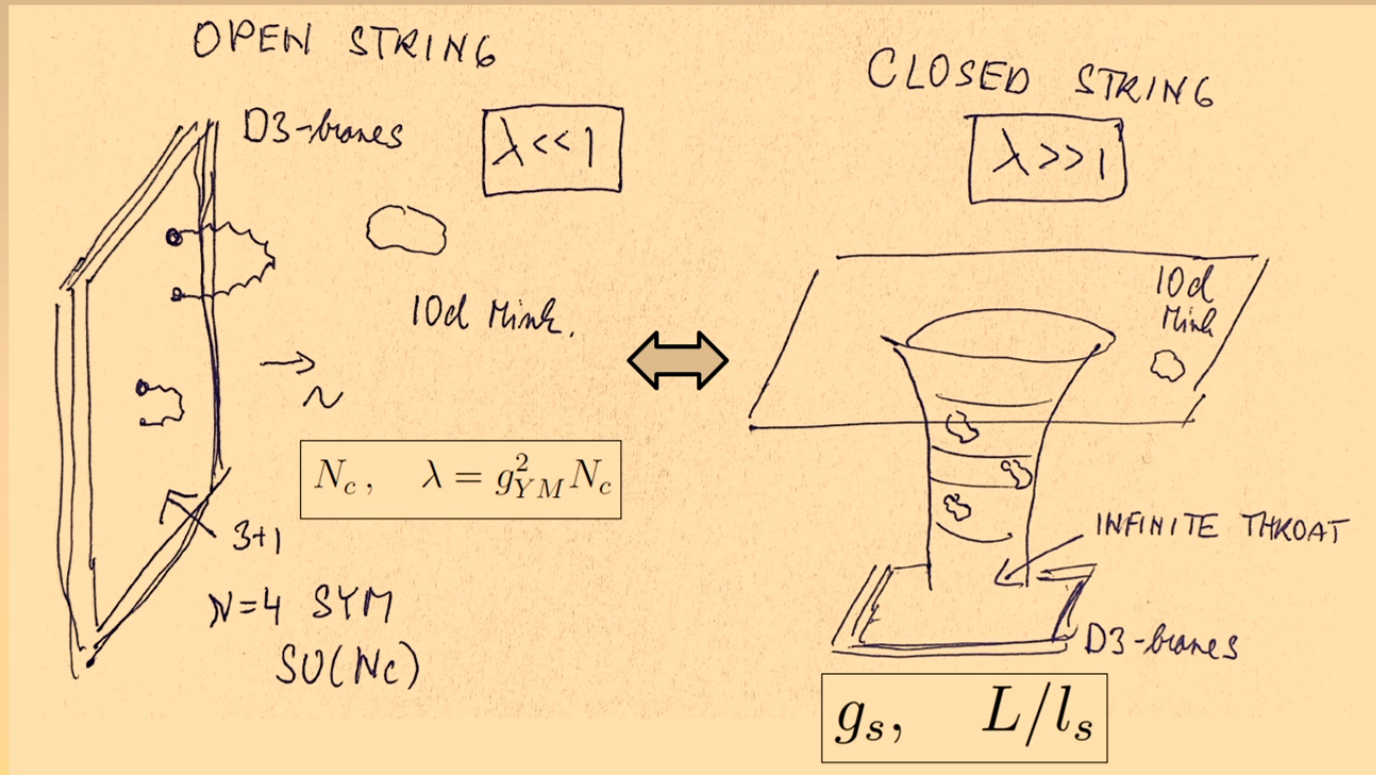 OPEN STRING
D3-branes
λ<<1
10d Mink.
r
N_c, λ = g²_{YM} N_c
3+1
N=4 SYM
SU(Nc)
CLOSED STRING
λ>>1
10d
Mink
INFINITE THROAT
D3-branes
g_s, L/l_s